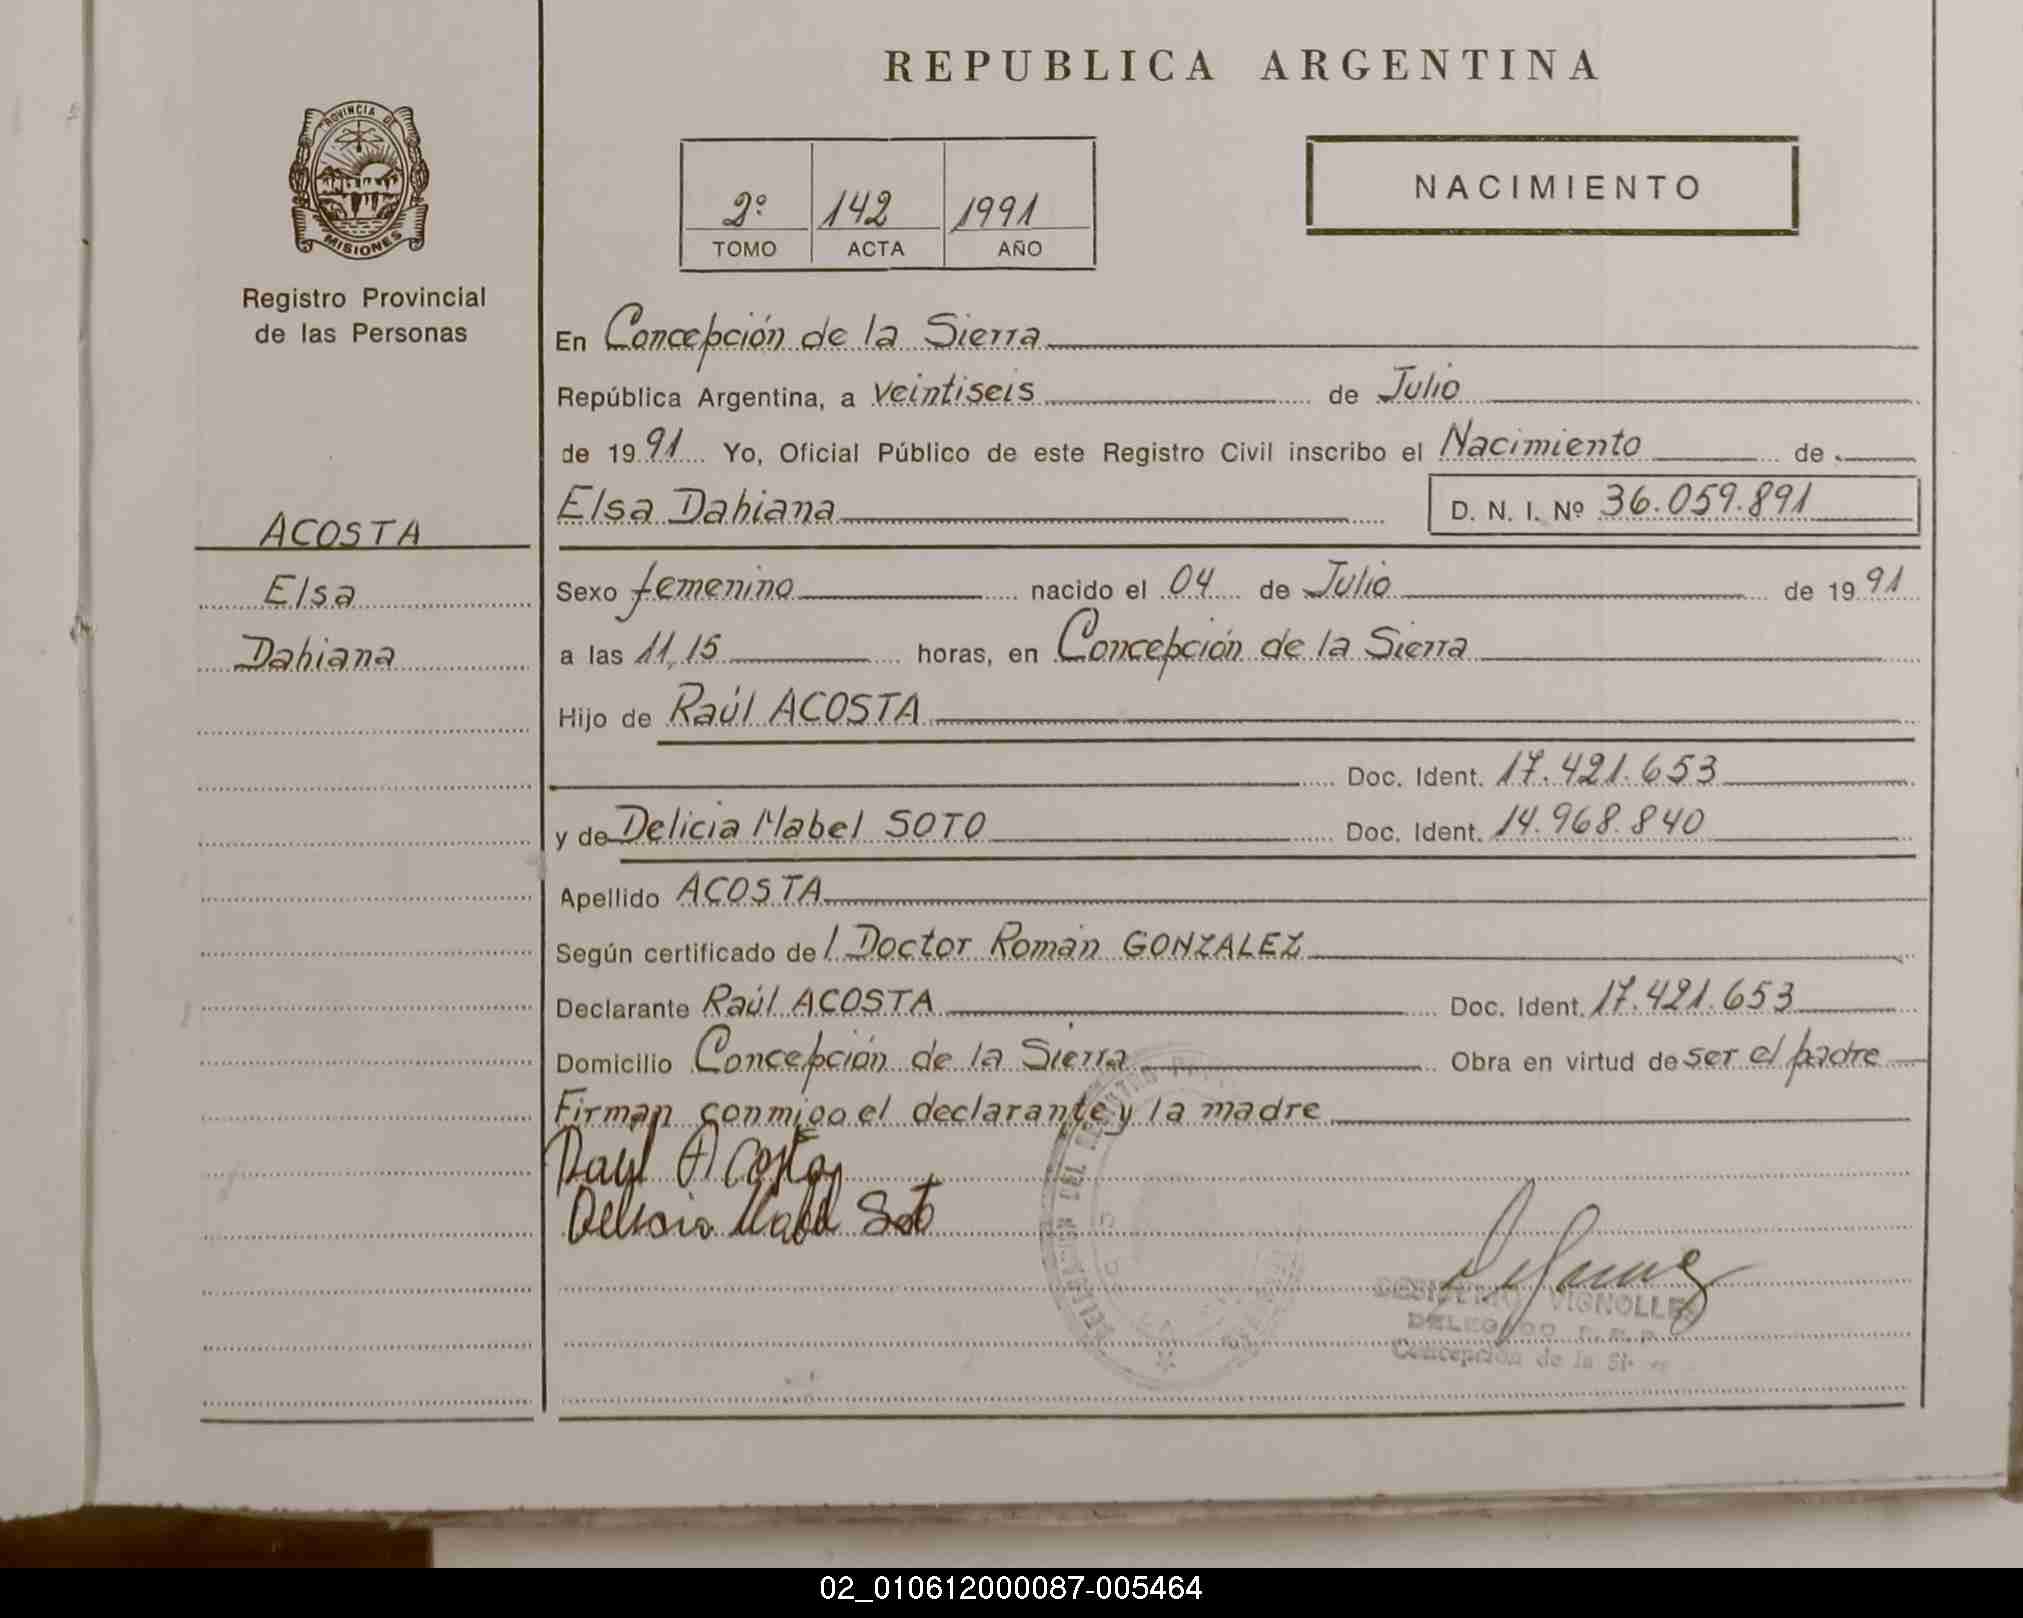 REPUBLICA ARGENTINA
PROVINCIA DE
MISIONES
Registro Provincial
de las Personas
2º 142 1991
TOMO ACTA AÑO
NACIMIENTO
En Concepción de la Sierra
República Argentina, a veintiseis de Julio
de 1991 Yo, Oficial Público de este Registro Civil inscribo el Nacimiento de
Elsa Dahiana D. N. I. Nº 36.059.891
ACOSTA
Elsa
Dahiana
Sexo femenino nacido el 04 de Julio de 1991
a las 11,15 horas, en Concepción de la Sierra
Hijo de Raúl ACOSTA
Doc. Ident. 17.421.653
y de Delicia Mabel SOTO Doc. Ident. 14.968.840
Apellido ACOSTA
Según certificado de l Doctor Román GONZALEZ
Declarante Raúl ACOSTA Doc. Ident. 17.421.653
Domicilio Concepción de la Sierra Obra en virtud de ser el padre
Firman conmigo el declarante y la madre
Raul Acosta
Delicia Mabel Soto
DEL REGISTRO
VIGNOLLES
DELEGADO
Concepción de la
02_010612000087-005464